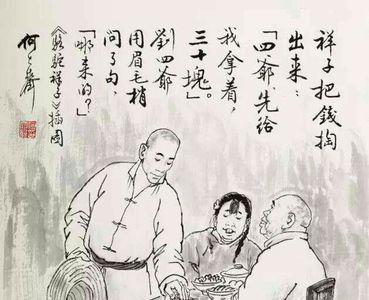 祥子把錢掏
出来：
「四爺先给
我拿着，
三十塊」。
劉四爺
用眉毛梢
问了句，
「哪来的？」
《駱駝祥子》插图